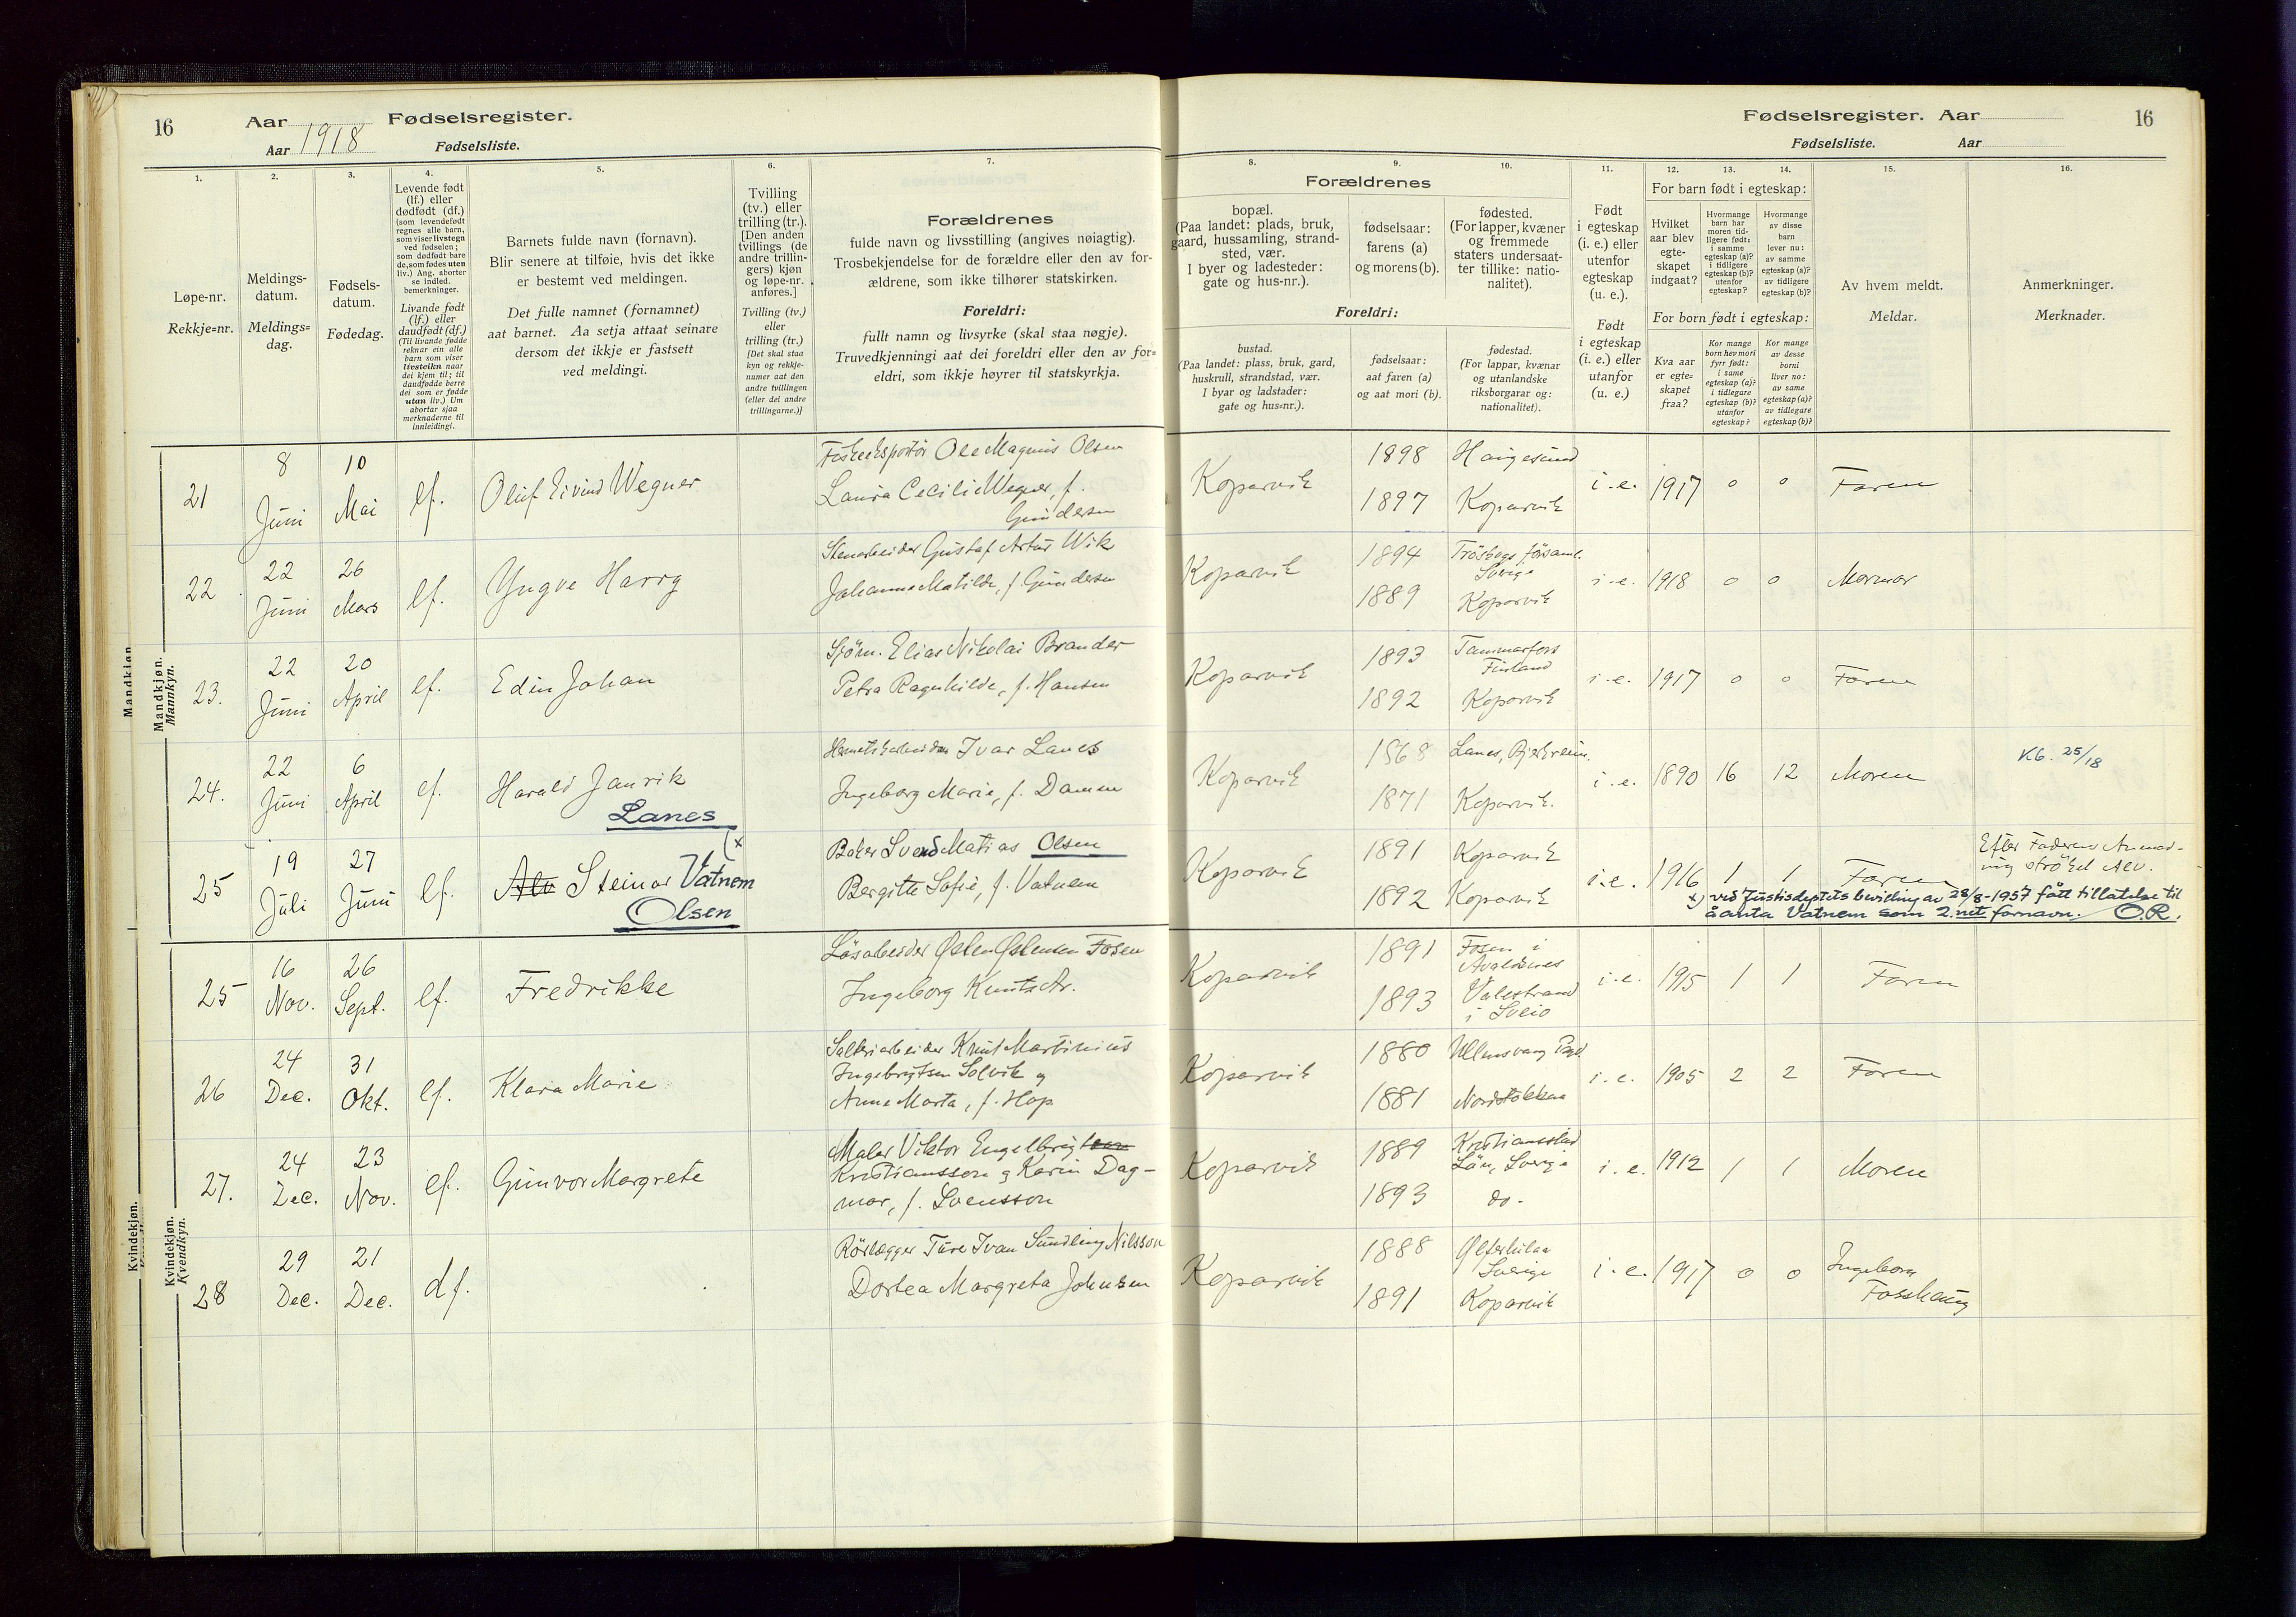 16
Aar
Fødselsregister.
Aar 1918
Fødselsliste.
1.
Løpe-nr.
Rekkje=nr.
2.
Meldings-
datum.
Meldings=
dag.
3.
Fødsels-
datum.
Fødedag.
4.
Levende født
(lf.) eller
dødfødt (df.)
(som levendefødt
regnes alle barn,
som viser livstegn
ved fødselen;
som dødfødt bare
de, som fødes uten
liv.) Ang. aborter
se indled.
bemerkninger.
Livande født
(lf.) eller
daudfødt (df.)
(Til livande fødde
reknar ein alle
barn som viser
livsteikn naar
dei kjem til; til
daudfødde berre
dei som er fødde
utan liv.) Um
abortar sjaa
merknaderne til
innleidingi.
5.
Barnets fulde navn (fornavn).
Blir senere at tilføie, hvis det ikke
er bestemt ved meldingen.
Det fulle namnet (fornamnet)
aat barnet. Aa setja attaat seinare
dersom det ikkje er fastsett
ved meldingi.
6.
Tvilling
(tv.) eller
trilling (tr.).
[Den anden
tvillings (de
andre trillin-
gers) kjøn
og løpe-nr.
anføres.]
Tvilling (tv.)
eller
trilling (tr.)
[Det skal staa
kyn og rekkje-
numer aat den
andre tvillingen
(eller dei andre
trillingarne.)]
7.
Forældrenes
fulde navn og livsstilling (angives nøiagtig).
Trosbekjendelse for de forældre eller den av for-
ældrene, som ikke tilhører statskirken.
Foreldri:
fullt namn og livsyrke (skal staa nøgje).
Truvedkjenningi aat dei foreldri eller den av for=
eldri, som ikkje høyrer til statskyrkja.
Fødselsregister. Aar
16
Fødselsliste. Aar
8.
Forældrenes
bopæl.
(Paa landet: plads, bruk,
gaard, hussamling, strand-
sted, vær.
I byer og ladesteder:
gate og hus-nr.).
Foreldri:
bustad.
(Paa landet: plass, bruk, gard,
huskrull, strandstad, vær.
I byar og ladstader:
gate og hus=nr.).
9.
fødselsaar:
farens (a)
og morens (b).
fødselsaar:
aat faren (a)
og aat mori (b).
10.
fødested.
(For lapper, kvæner
og fremmede
staters undersaat-
ter tillike: natio-
nalitet).
fødestad.
(For lappar, kvænar
og utanlandske
riksborgarar og:
nationalitet).
11.
Født
i egteskap
(i. e.) eller
utenfor
egteskap
(u. e.).
Født
i egteskap
(i. e.) eller
utanfor
(u. e.)
12.
13.
14.
For barn født i egteskap:
Hvilket
aar blev
egte-
skapet
indgaat?
Hvormange
barn har
moren tid-
ligere født:
i samme
egteskap (a)?
i tidligere
egteskap (b)?
utenfor
egteskap?
Hvormange
av disse
barn
lever nu:
av samme
egteskap (a)?
av tidligere
egteskap (b)?
For born født i egteskap:
Kva aar
er egte=
skapet
fraa?
Kor mange
born hev mori
fyrr født:
i same
egteskap (a)?
i tidlegare
egteskap (b)?
utanfor
egteskap?
Kor mange
av desse
borni
liver no:
av same
egteskap (a)?
av tidlegare
egteskap (b)?
15.
Av hvem meldt.
Meldar.
16.
Anmerkninger.
Merknader.
Mandkjøn.
Mannkyn.
21
8 Juni
10 Mai
lf.
Oluf Eivind Wegner
Fiskeeksportør Ole Magnus Olsen
Laura Cecilie Wegner, f.
Gundersen
Koparvik
1898
1897
Haugesund
Koparvik
i.e. 1917 0 0 Faren
22
22 Juni
26 Mars
lf.
Yngve Harry
Stenarbeider Gustaf Artur Wik
Johanne Matilde, f. Gundersen
Koparvik
1894
1889
Sverige
Koparvik
i.e. 1918 0 0 Mormor
23.
22 Juni
20 April
lf.
Edin Johan
Sjøm. Elias Nikolai Brander
Petra Ragnhilde, f. Hansen
Koparvik
1893
1892
Tammarfors
Finland
Koparvik
i.e. 1917 0 0 Faren
24.
22 Juni
6 April
lf.
Harald Janrik
Lanes
Ivar Lanes
Ingeborg Marie, f. Damm
Koparvik
1868
1871
Lanes, Bjerkreim.
Koparvik.
i.e. 1890 16 12 Moren
Kb. 25/18
25
19 Juli
27 Juni
lf.
Alv Steinar Vatnem (x
Olsen
Baker Svend Matias Olsen
Bergitte Sofie, f. Vatnem
Koparvik
1891
1892
Koparvik
Koparvik
i.e. 1916 1 1 Faren
Efter Faderens Anmod-
ning strøket Alv.
x) ved Justisdeptets beviling av 28/8-1957 fått tillatelse til
å anta Vatnem som 2.net fornavn. O.R.
Kvindekjøn.
Kvendkyn.
25
16 Nov.
26 Sept.
lf.
Fredrikke
Løsarbeider Østen Østensen Fosen
Ingeborg Knutsdtr.
Koparvik
1891
1893
Fosen i
Avaldsnes
Valestrand
i Sveio
i.e. 1915 1 1 Faren
26
24 Dec.
31 Okt.
lf.
Klara Marie
Knut Martinius
Ingebrigtsen Solvik og
Anne Marta, f. Hop
Koparvik
1880
1881
Ullensvang
Nordstokken
i.e. 1905 2 2 Faren
27.
24 Dec.
23 Nov.
lf.
Gunvor Margrete
Maler Viktor Engelbrigtsen
Kristiansson og Karin Dag-
mar, f. Svensson
Koparvik
1889
1893
Kristiansstad
Län, Sverige
do.
i.e. 1912 1 1 Moren
28
29 Dec.
21 Dec.
df.
Rørlægger Ture Ivan Sundling Nilsson
Dortea Margreta Johnsen
Koparvik
1888
1891
Sverige
Koparvik
i.e. 1917 0 0 Ingeborg
Mandkjøn
Kvindekjøn.